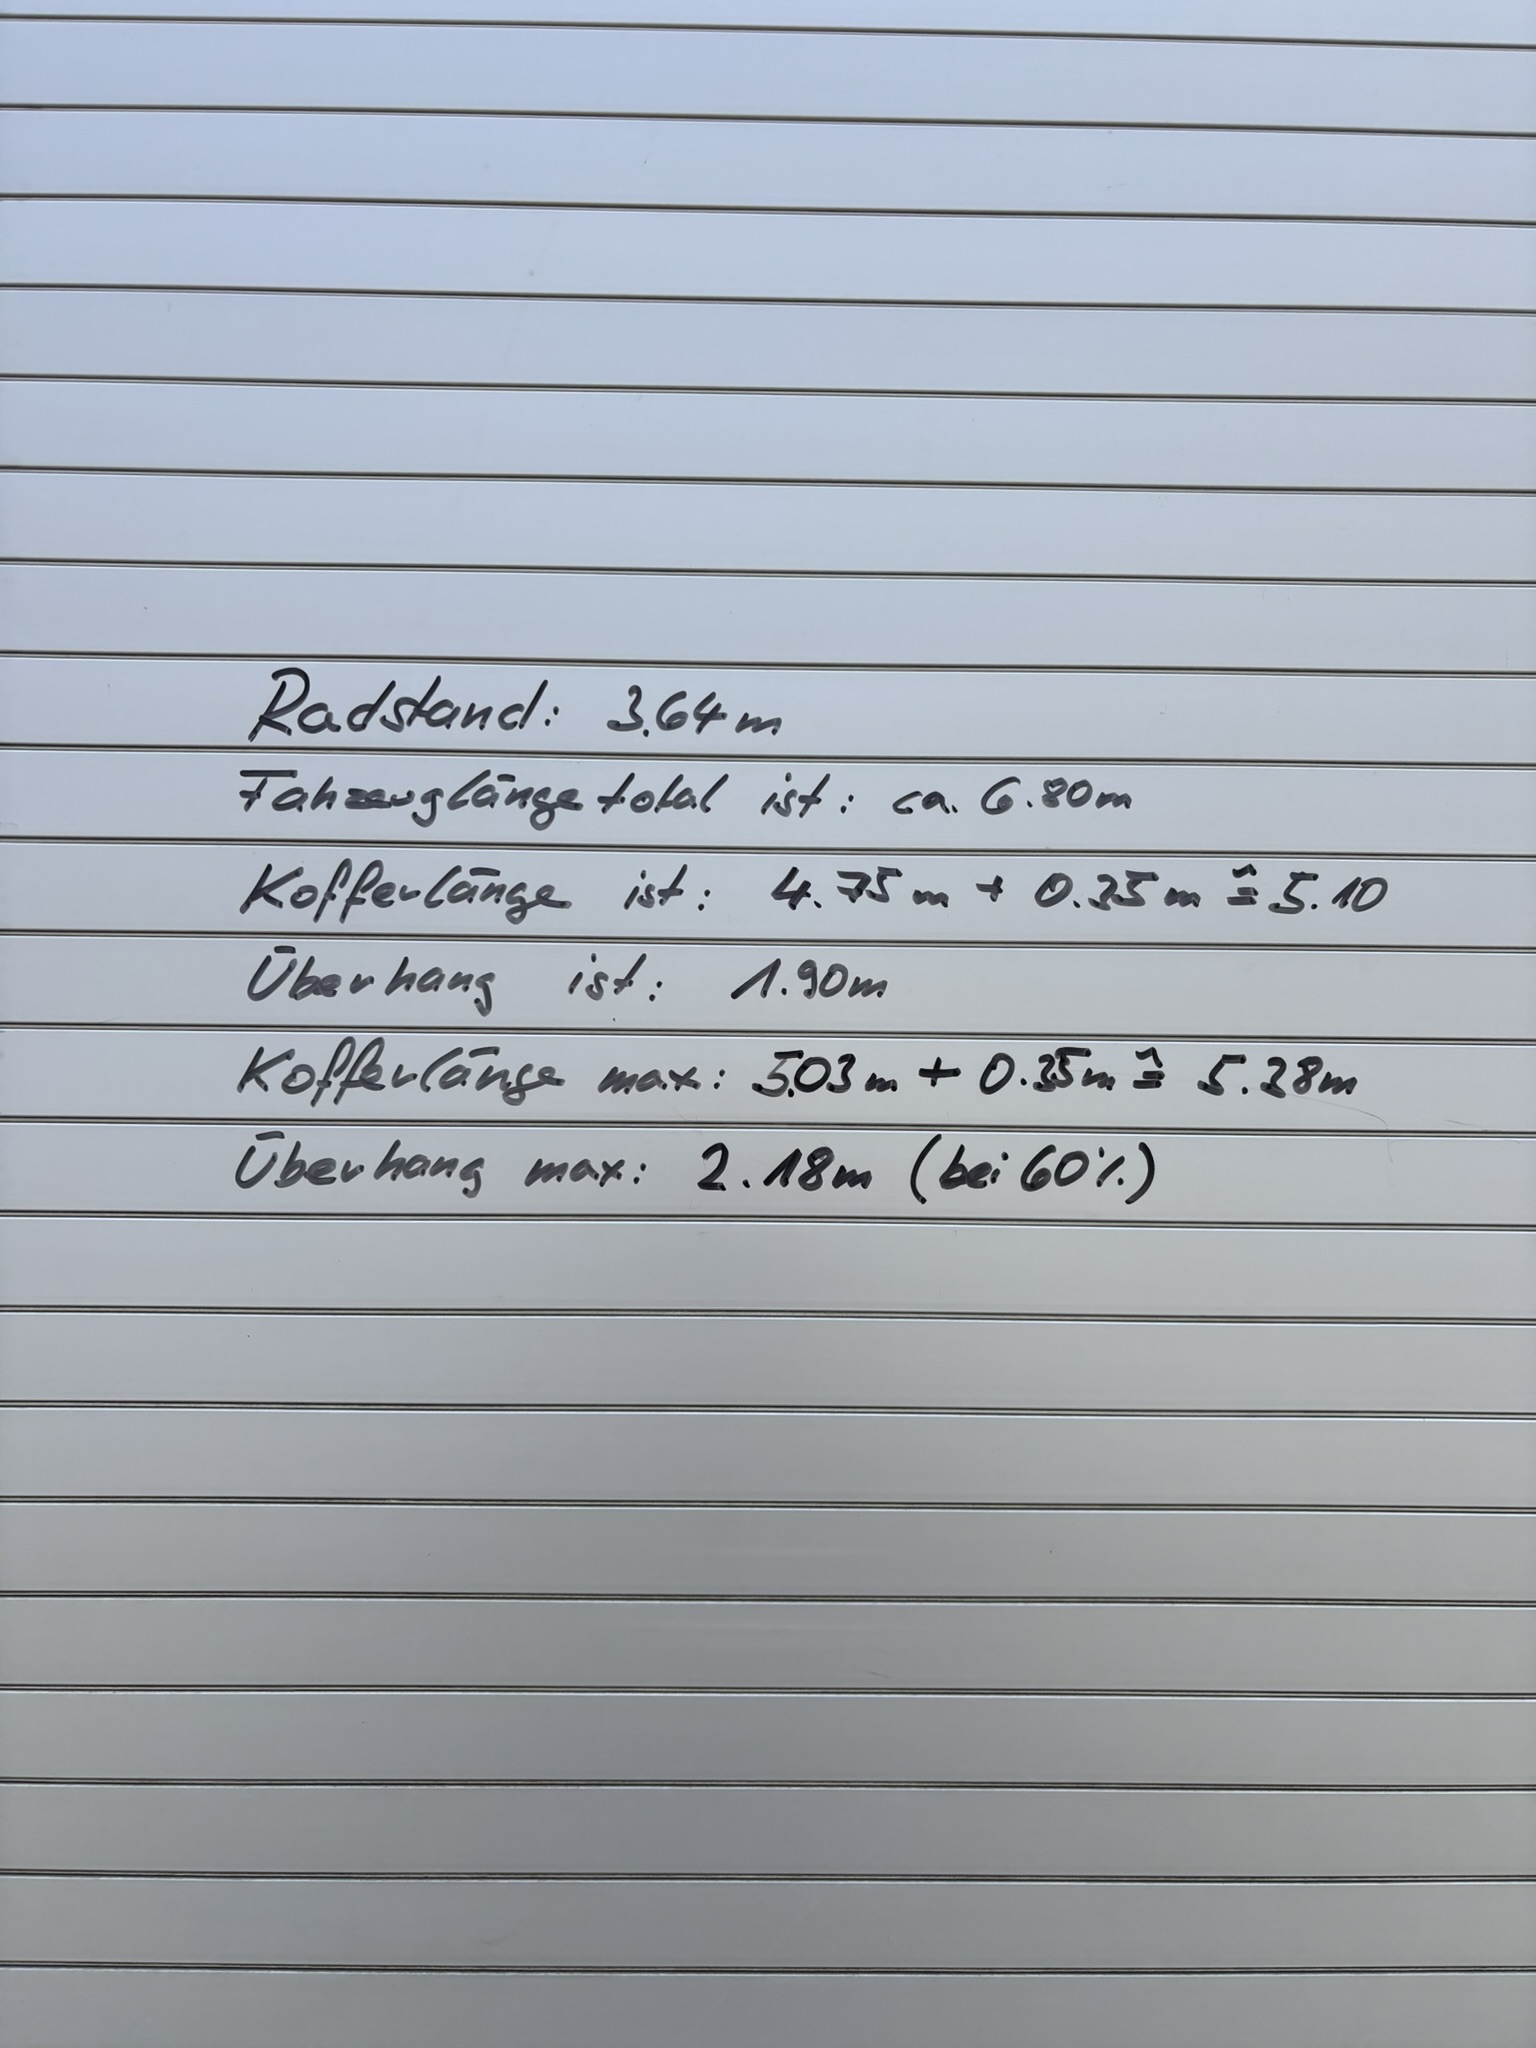 Radstand: 3.64m
Fahrzeuglänge total ist: ca. 6.80m
Kofferlänge ist: 4.75m + 0.35m ≙ 5.10
Überhang ist: 1.90m
Kofferlänge max: 5.03m + 0.35m ≙ 5.38m
Überhang max: 2.18m (bei 60%)